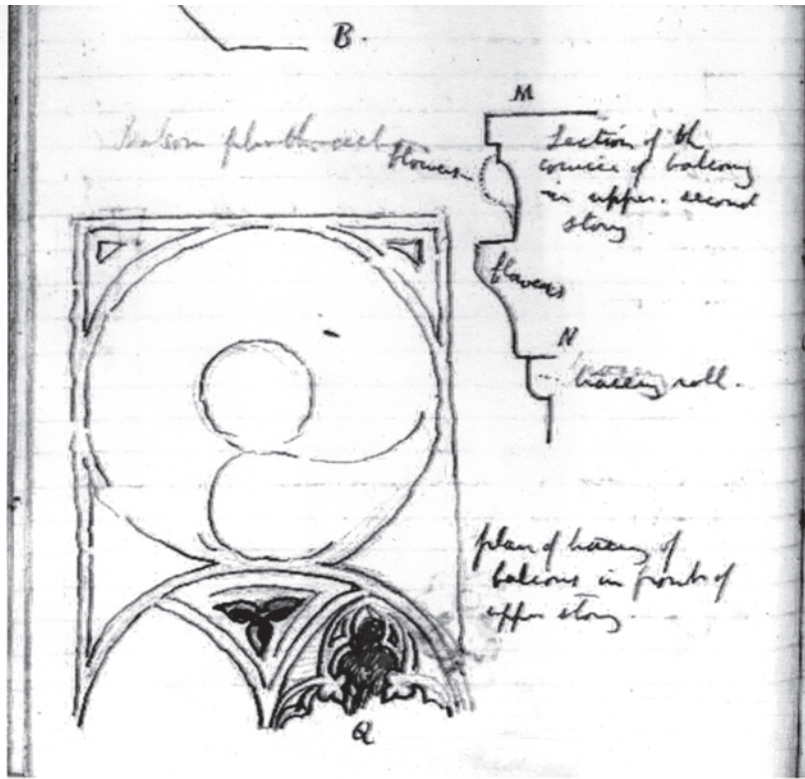 B.
M
flowers
Section of the
cornice of balcony
in upper. second
story
flowers
N
tracery roll.
plan of tracery of
balcony in front of
upper story.
Q